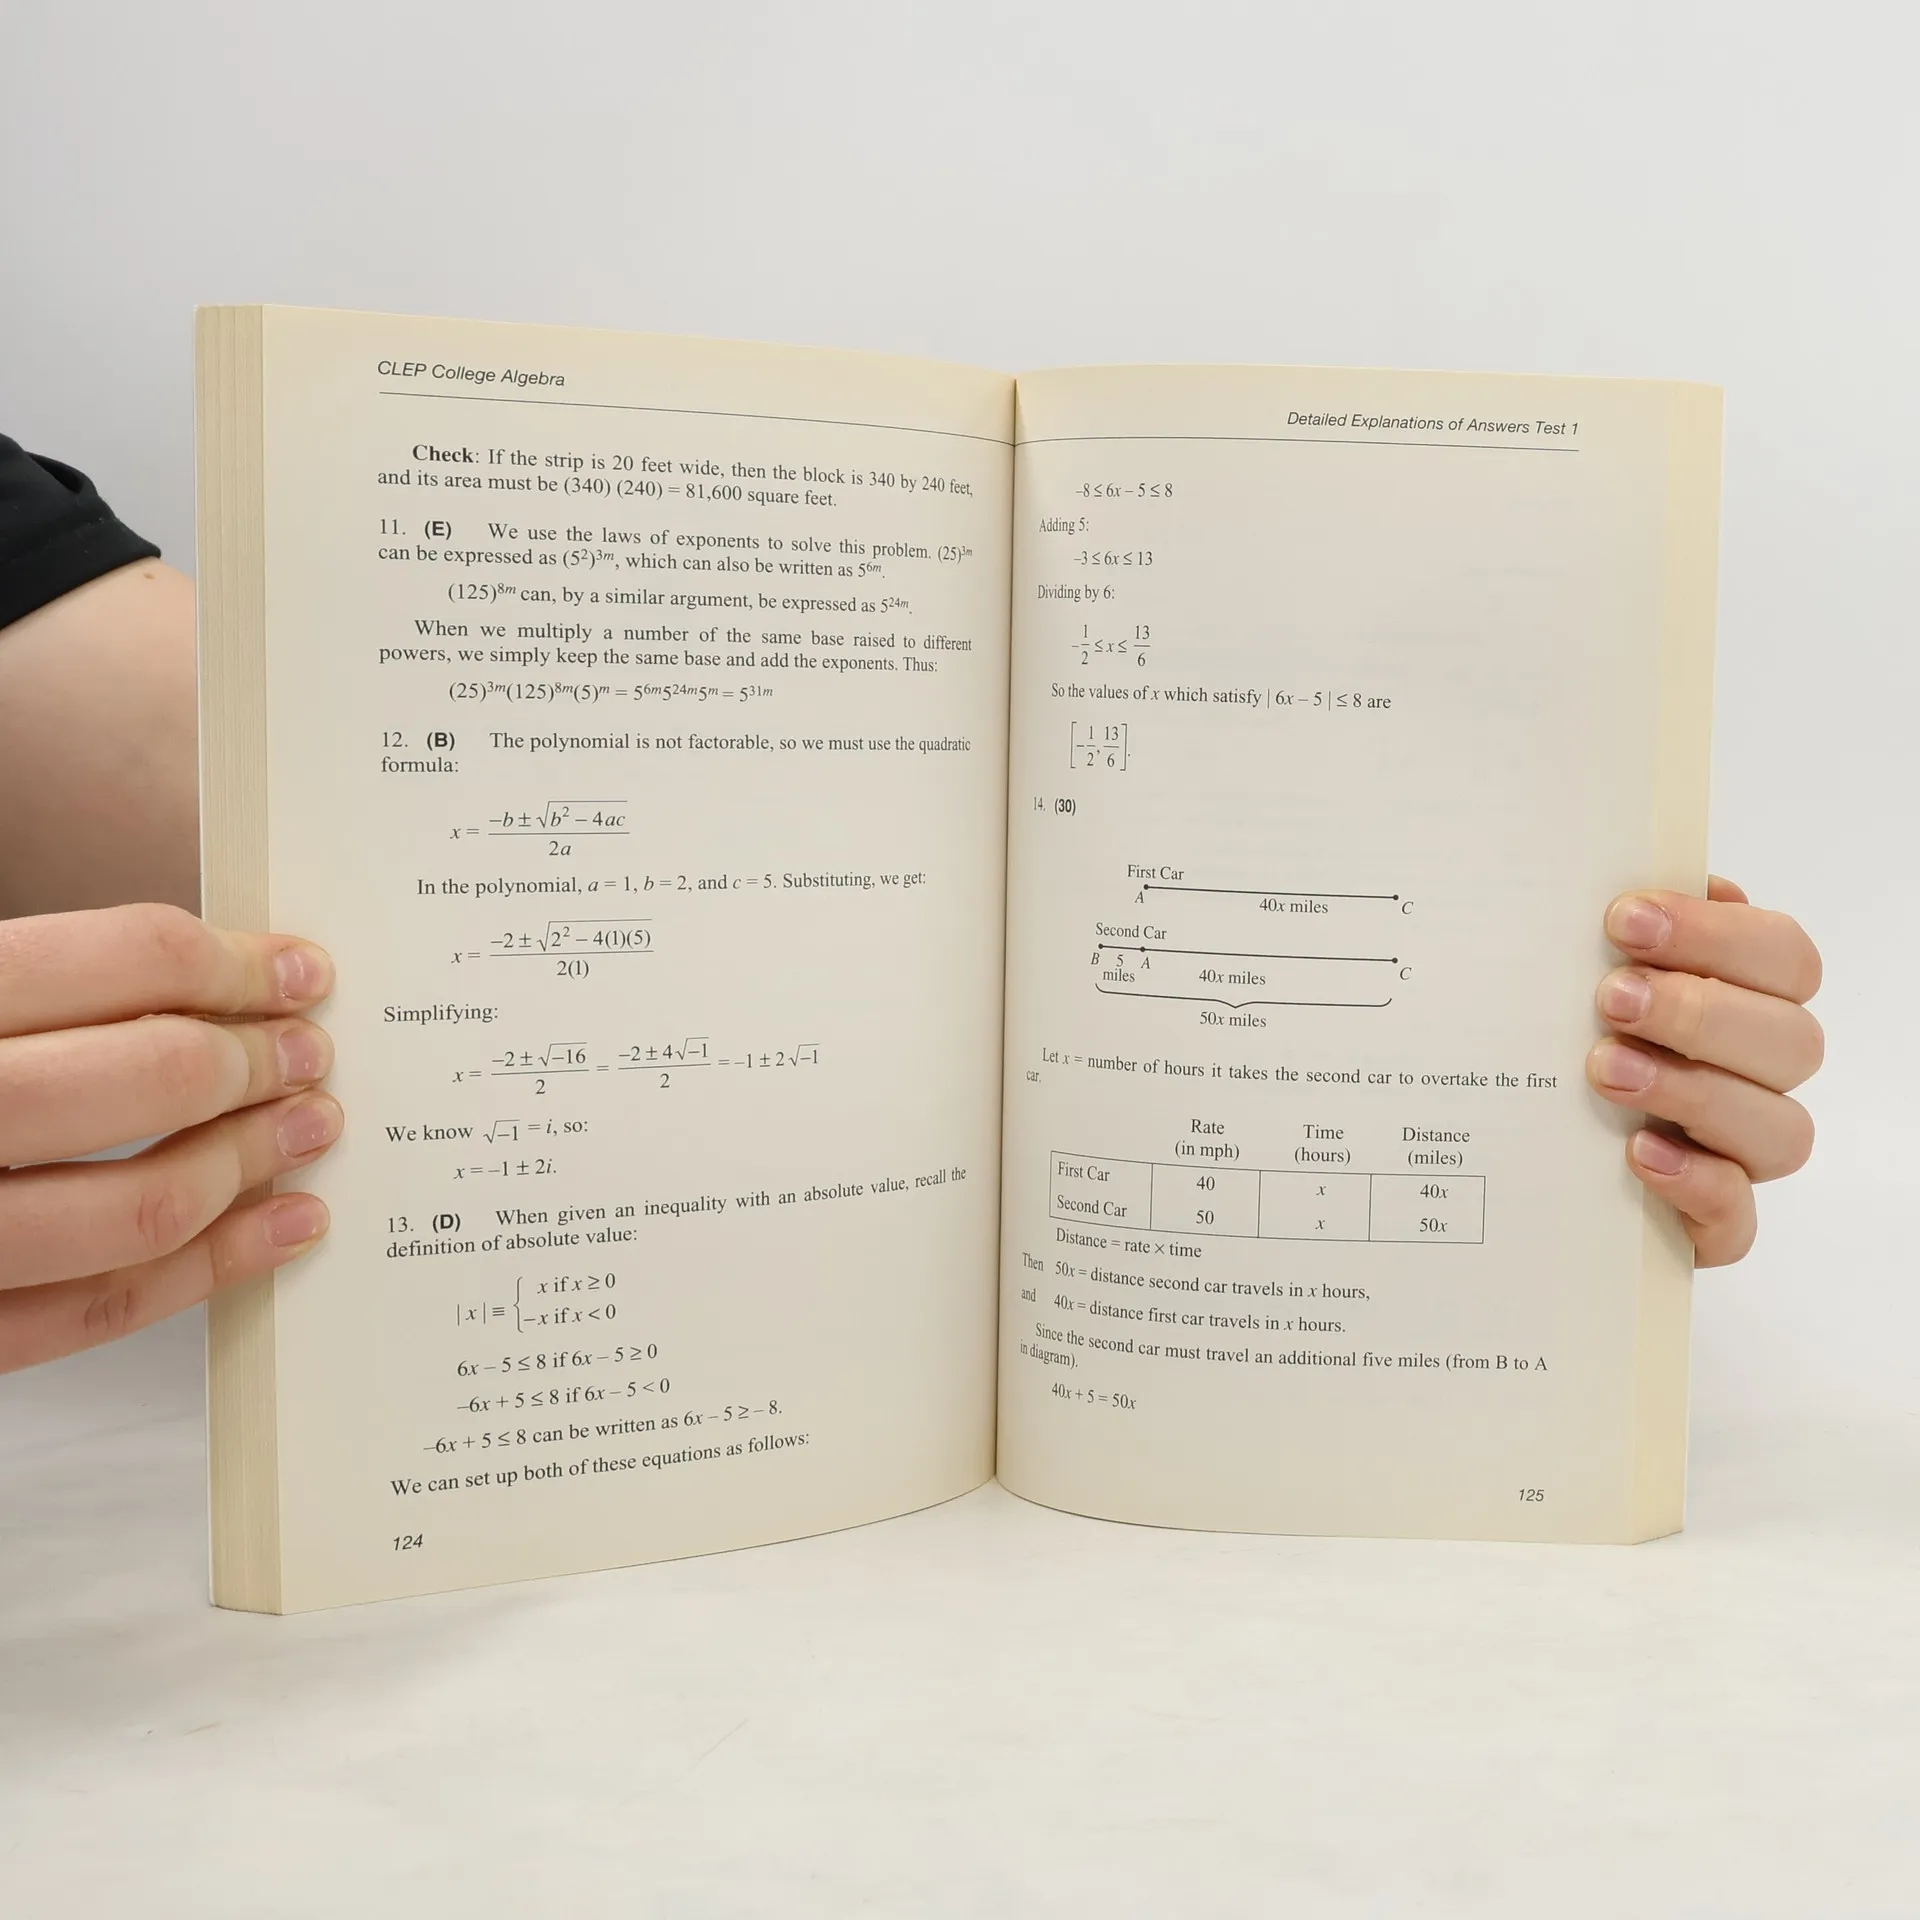 CLEP College Algebra
Check: If the strip is 20 feet wide, then the block is 340 by 240 feet,
and its area must be (340) (240) = 81,600 square feet.
11. (E) We use the laws of exponents to solve this problem. (25)³ᵐ
can be expressed as (5²)³ᵐ, which can also be written as 5⁶ᵐ.
(125)⁸ᵐ can, by a similar argument, be expressed as 5²⁴ᵐ.
When we multiply a number of the same base raised to different
powers, we simply keep the same base and add the exponents. Thus:
(25)³ᵐ(125)⁸ᵐ(5)ᵐ = 5⁶ᵐ5²⁴ᵐ5ᵐ = 5³¹ᵐ
12. (B) The polynomial is not factorable, so we must use the quadratic
formula:
x = (−b ± √(b² − 4ac)) / 2a
In the polynomial, a = 1, b = 2, and c = 5. Substituting, we get:
x = (−2 ± √(2² − 4(1)(5))) / 2(1)
Simplifying:
x = (−2 ± √−16) / 2 = (−2 ± 4√−1) / 2 = −1 ± 2√−1
We know √−1 = i, so:
x = −1 ± 2i.
13. (D) When given an inequality with an absolute value, recall the
definition of absolute value:
| x | ≡ { x if x ≥ 0
−x if x < 0
6x − 5 ≤ 8 if 6x − 5 ≥ 0
−6x + 5 ≤ 8 if 6x − 5 < 0
−6x + 5 ≤ 8 can be written as 6x − 5 ≥ − 8.
We can set up both of these equations as follows:
124
Detailed Explanations of Answers Test 1
−8 ≤ 6x − 5 ≤ 8
Adding 5:
−3 ≤ 6x ≤ 13
Dividing by 6:
−1/2 ≤ x ≤ 13/6
So the values of x which satisfy | 6x − 5 | ≤ 8 are
[−1/2, 13/6].
14. (30)
First Car
A 40x miles C
Second Car
B 5 miles A 40x miles C
50x miles
Let x = number of hours it takes the second car to overtake the first
car.
Rate (in mph) Time (hours) Distance (miles)
First Car 40 x 40x
Second Car 50 x 50x
Distance = rate × time
Then 50x = distance second car travels in x hours,
and 40x = distance first car travels in x hours.
Since the second car must travel an additional five miles (from B to A
in diagram),
40x + 5 = 50x
125